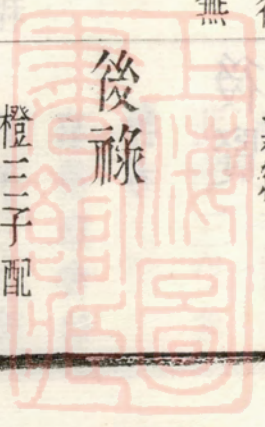 無
後祿
橙三子配
上海圖
書館藏